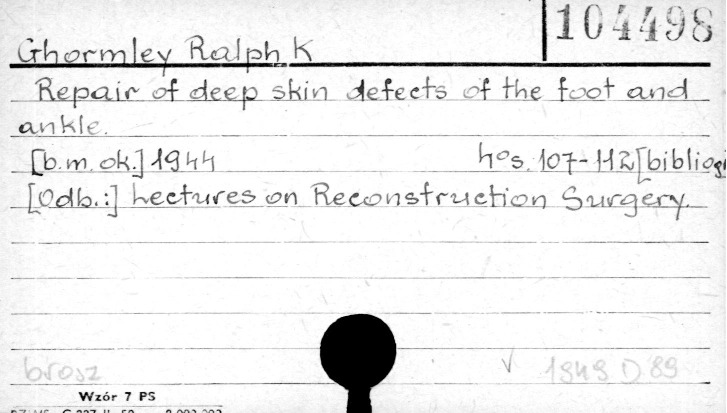 104498
Ghormley Ralph K
Repair of deep skin defects of the foot and
ankle.
[b.m. ok.] 1944 hos. 107-112 [bibliogr
[Odb.:] Lectures on Reconstruction Surgery.
brosz 1949 D 89
Wzór 7 PS